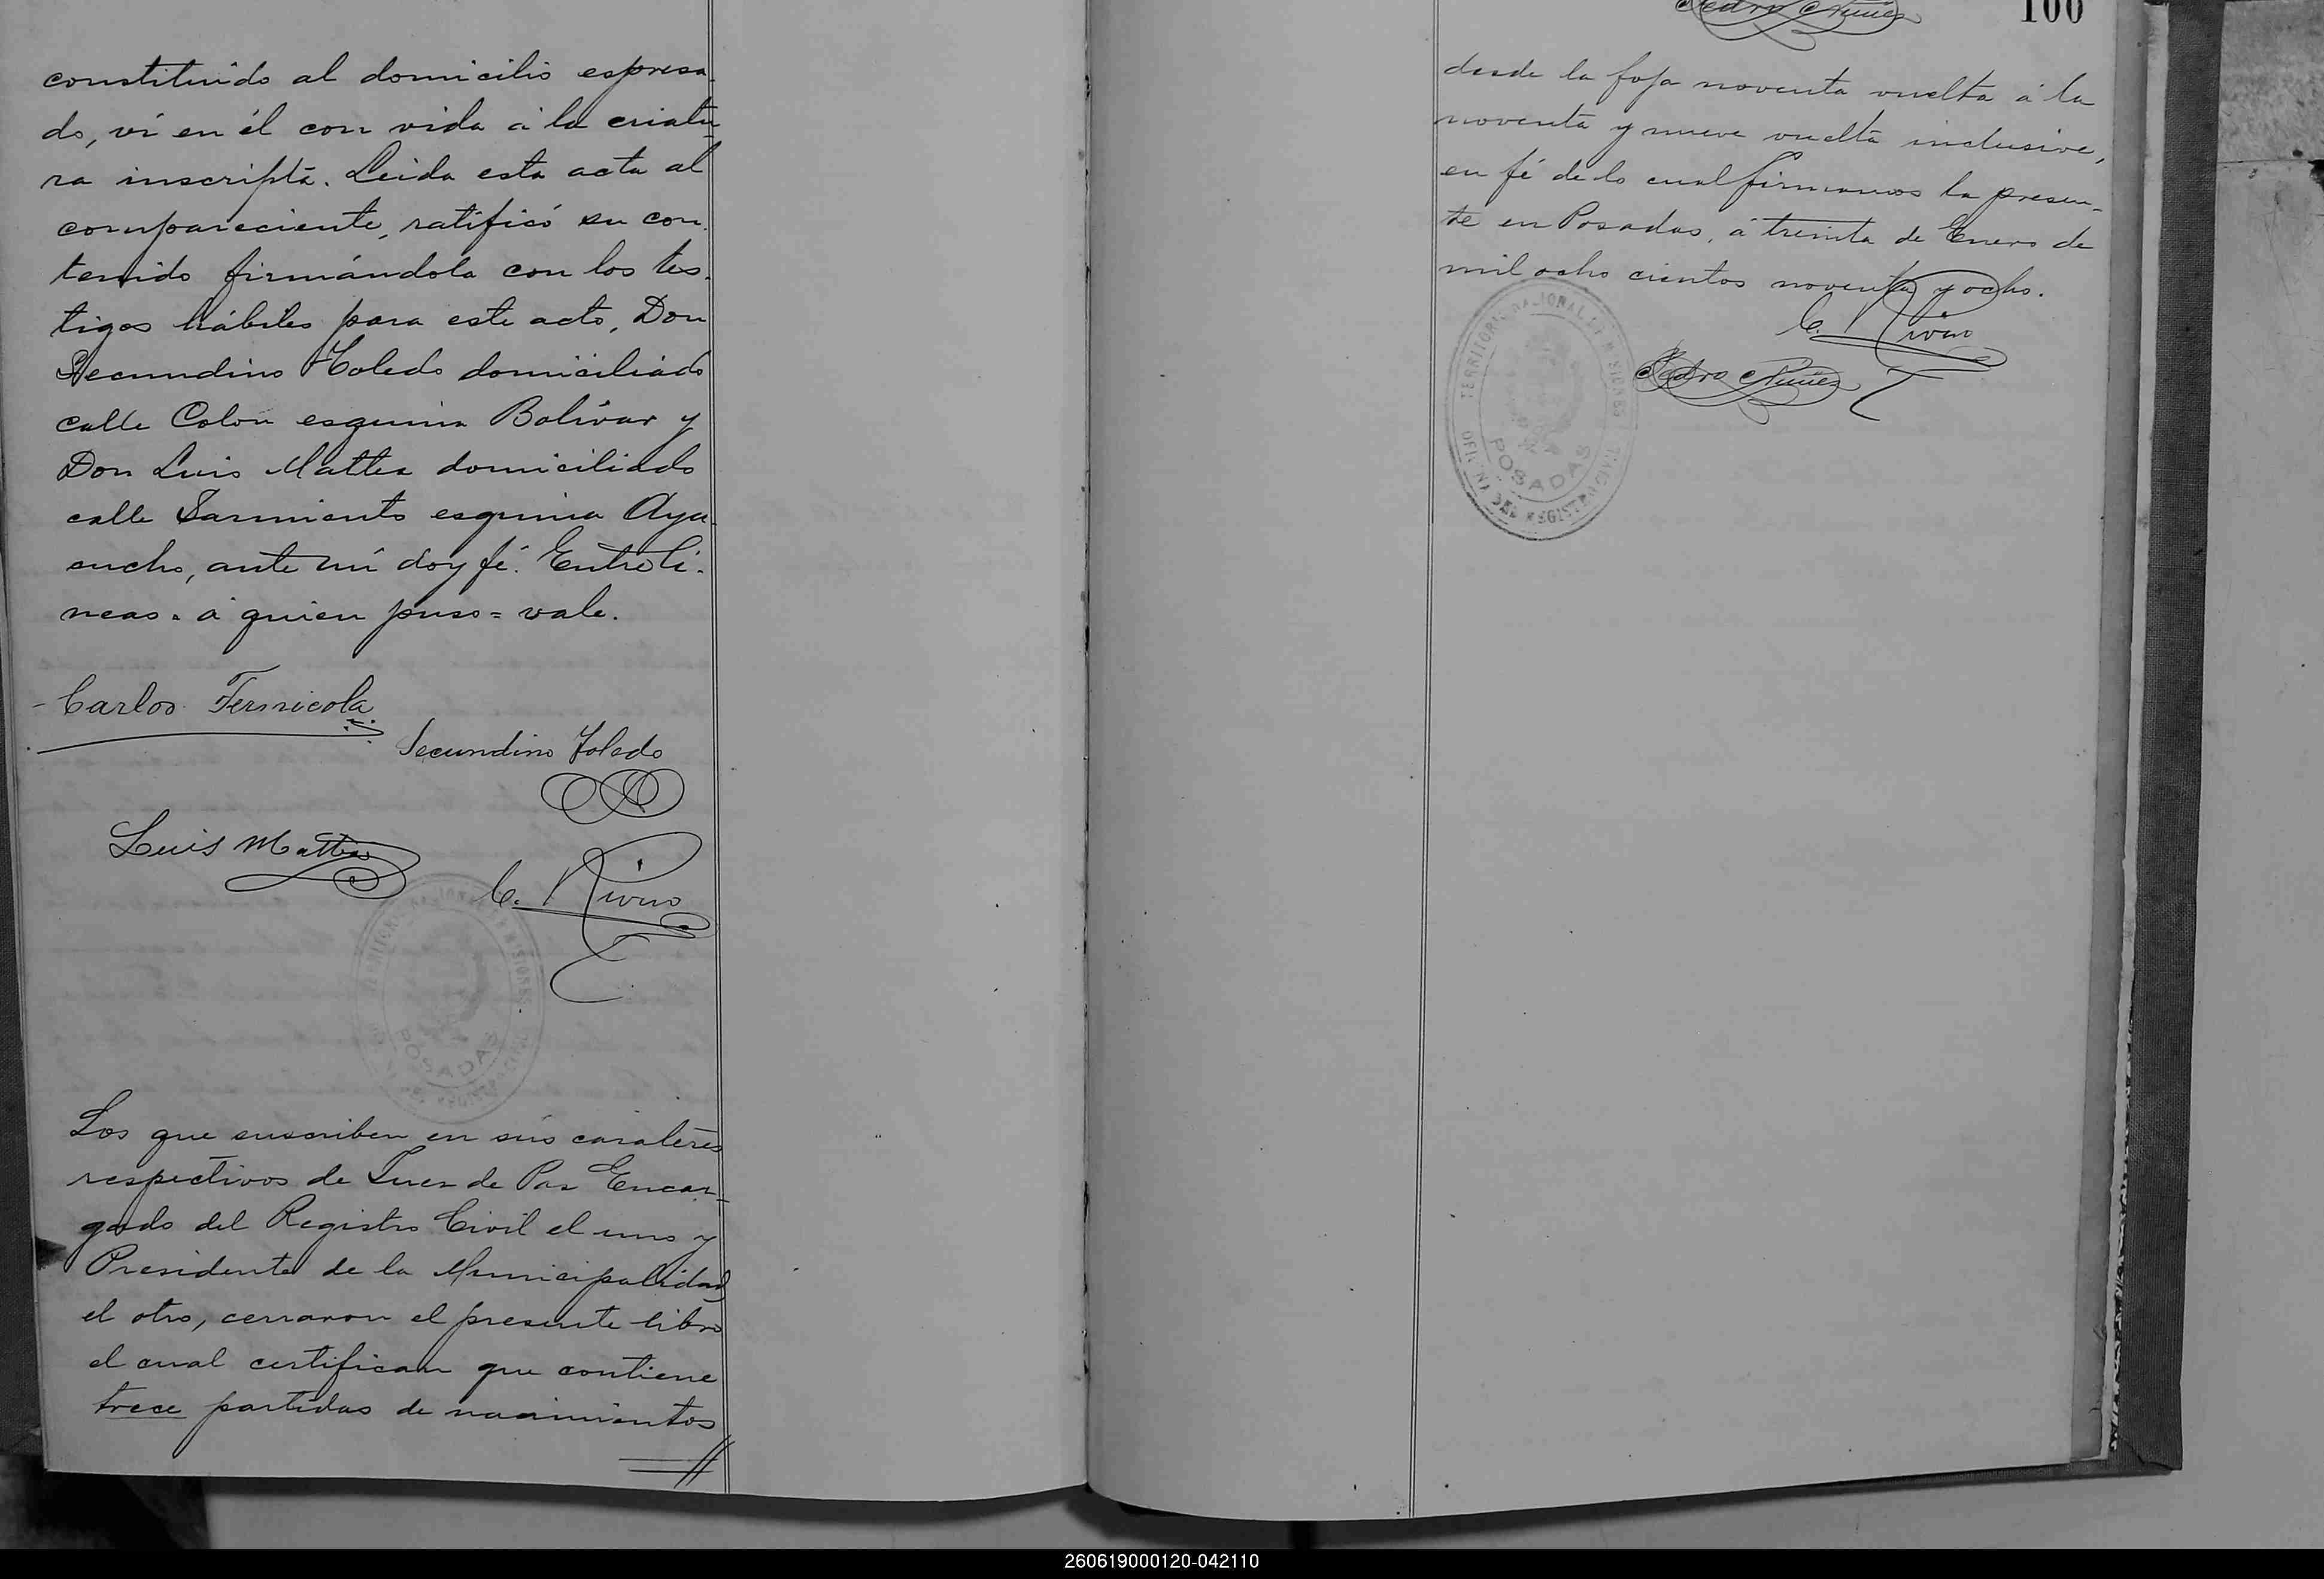 constituido al domicilio espresa-
do, ví en él con vida á la criatu-
ra inscripta. Leida esta acta al
compareciente, ratificó su con-
tenido firmándola con los tes-
tigos hábiles para este acto, Don
Secundino Toledo domiciliado
calle Colon esquina Bolívar y
Don Luis Mattea domiciliado
calle Sarmiento esquina Aya-
cucho, ante mí doy fé. Entre lí-
neas = á quien puso = vale.
Carlos Ternicola
Secundino Toledo
Luis Mattea
C. Rivero
POSADAS
Los que suscriben en sus carateres
respectivos de Juez de Paz Encar-
gado del Registro Civil el uno y
Presidente de la Municipalidad
el otro, cerraron el presente libro
el cual certifican que contiene
trece partidas de nacimientos
Pedro Nuñez
100
desde la foja noventa vuelta á la
noventa y nueve vuelta inclusive,
en fé de lo cual firmamos la presen-
te en Posadas, á treinta de Enero de
mil ocho cientos noventa y ocho.
C. Rivero
Pedro Nuñez
TERRITORIO NACIONAL DE MISIONES
POSADAS
OFICINA DEL REGISTRO
260619000120-042110